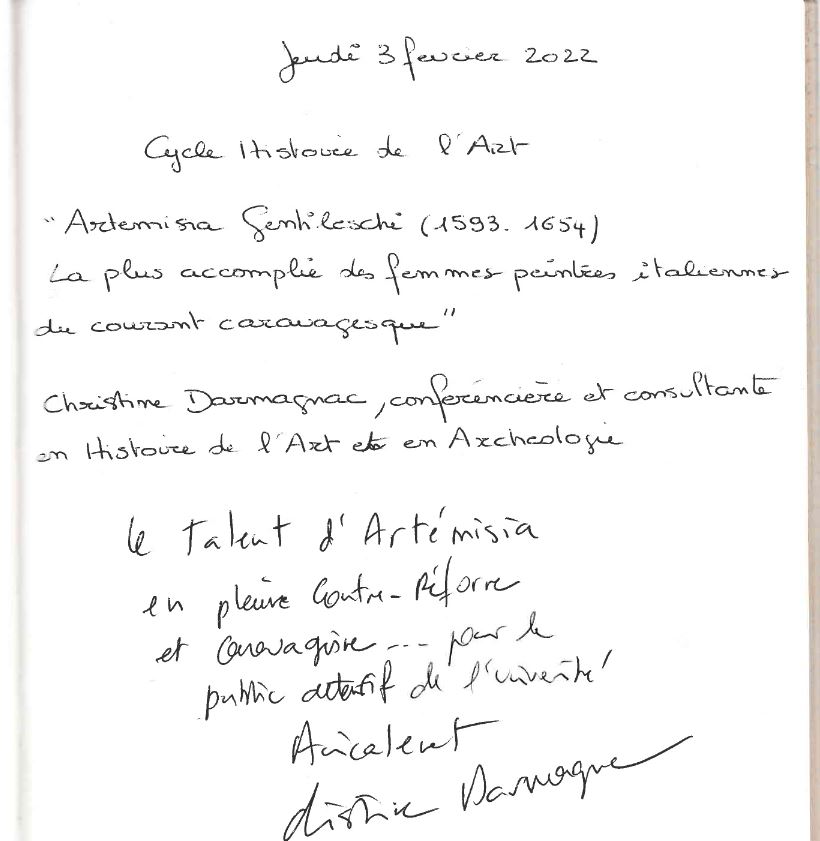 Jeudi 3 fevrier 2022
Cycle Histoire de l'Art
"Artemisia Gentileschi (1593. 1654)
La plus accomplie des femmes peintres italiennes
du courant caravagesque"
Christine Darmagnac, conférencière et consultante
en Histoire de l'Art et en Archeologie
le talent d'Artémisia
en pleine Contre-Réforme
et Caravagisme... pour le
public attentif de l'université
Amicalement
Christine Darmagnac